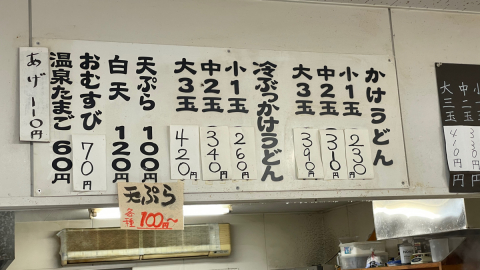 かけうどん
小1玉 230
中2玉 310
大3玉 390
冷ぶっかけうどん
小1玉 260
中2玉 340
大3玉 420
天ぷら 100
白天 120円
おむすび 70
温泉たまご 60円
あげ 110円
天ぷら
各種 100円~
中二玉
大三玉 410円